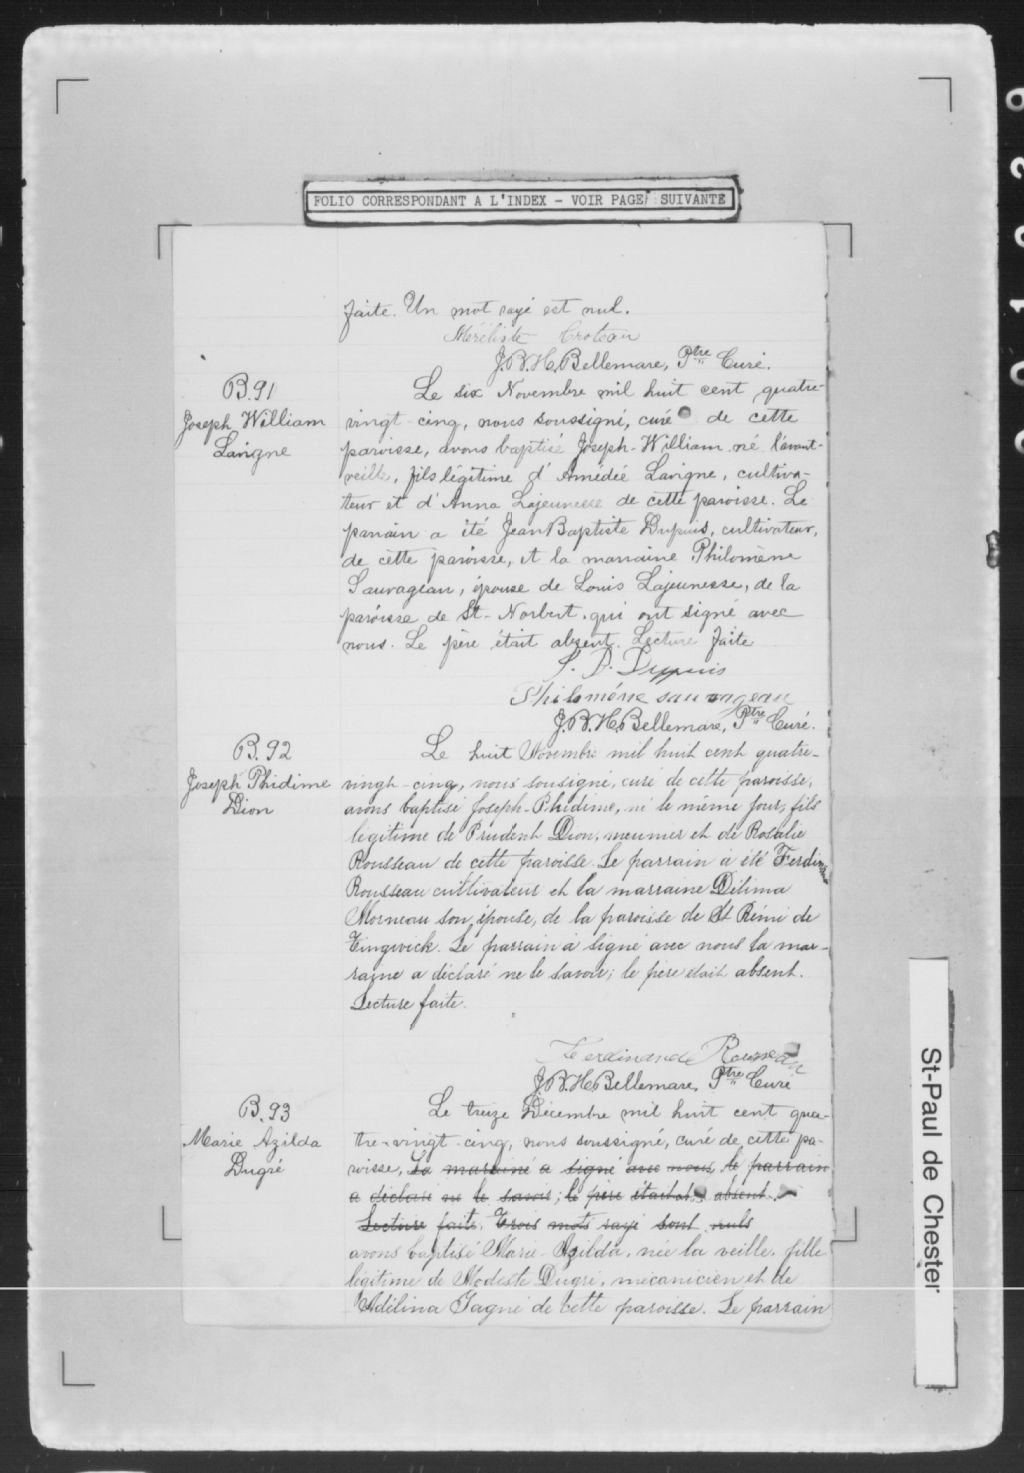 FOLIO CORRESPONDANT A L'INDEX - VOIR PAGE SUIVANTE
faite. Un mot rayé est nul.
Croteau
J.B.H. Bellemare, Ptre Curé.
B.91
Joseph William
Lavigne
Le six Novembre mil huit cent quatre-
vingt-cinq, nous soussigné, curé de cette
paroisse, avons baptisé Joseph-William né l'avant-
veille, fils légitime d'Amédée Lavigne, cultiva-
teur et d'Anna Lajeunesse de cette paroisse. Le
parrain a été Jean Baptiste Dupuis, cultivateur,
de cette paroisse, et la marraine Philomène
Sauvageau, épouse de Louis Lajeunesse, de la
paroisse de St-Norbert, qui ont signé avec
nous. Le père était absent. Lecture faite
J. B. Dupuis
Philoméne sauvageau
J.B.H. Bellemare, Ptre Curé.
B.92
Joseph Phidime
Dion
Le huit Novembre mil huit cent quatre-
vingt-cinq, nous sousigné, curé de cette paroisse,
avons baptisé Joseph-Phidime, né le même jour, fils
légitime de Prudent Dion, meunier et de Rosalie
Rousseau de cette paroisse. Le parrain a été
Rousseau cultivateur et la marraine Délima
Morneau son épouse, de la paroisse de St Rémi de
Tingwick. Le parrain a signé avec nous la mar-
raine a déclaré ne le savoir; le père était absent.
Lecture faite.
Ferdinande Rousseau
J.B.H. Bellemare, Ptre Curé
B.93
Marie Azilda
Dugré
Le treize Décembre mil huit cent qua-
tre-vingt-cinq, nous soussigné, curé de cette pa-
roisse, la marraine a signé avec nous, le parrain
a déclaré ne le savoir; le père était absent.
Lecture faite. Trois mots rayé sont nuls
avons baptisé Marie-Azilda, née la veille, fille
légitime de Modeste Dugré, mécanicien et de
Adélina Gagné de cette paroisse. Le parrain
St-Paul de Chester